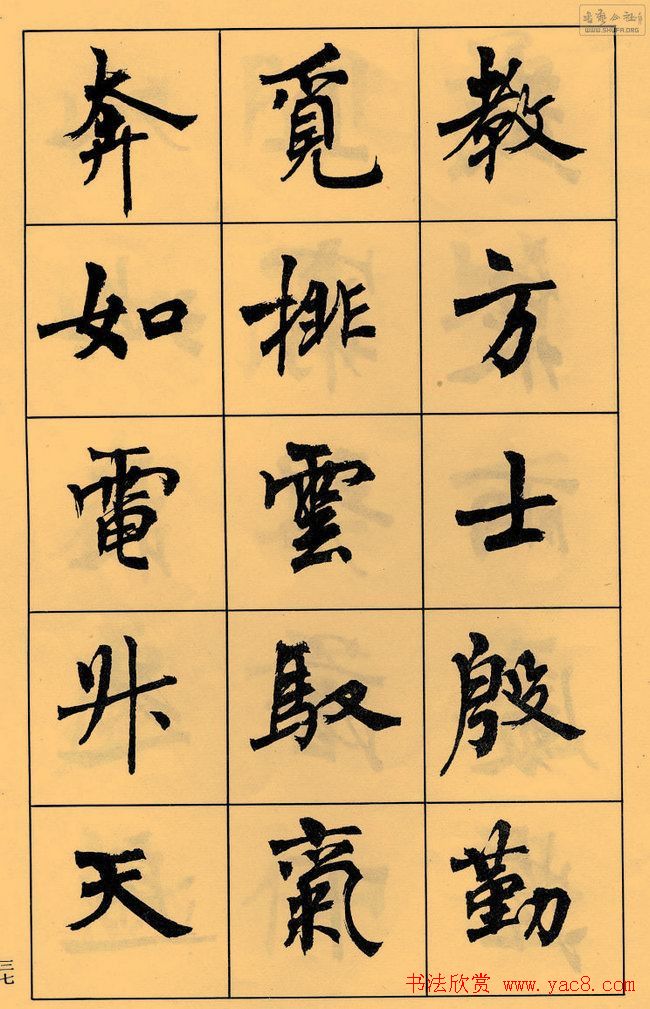 教方士殷勤
覓排雲馭氣
奔如電昇天
三七
书法欣赏 www.yac8.com
WWW.SHUFA.ORG